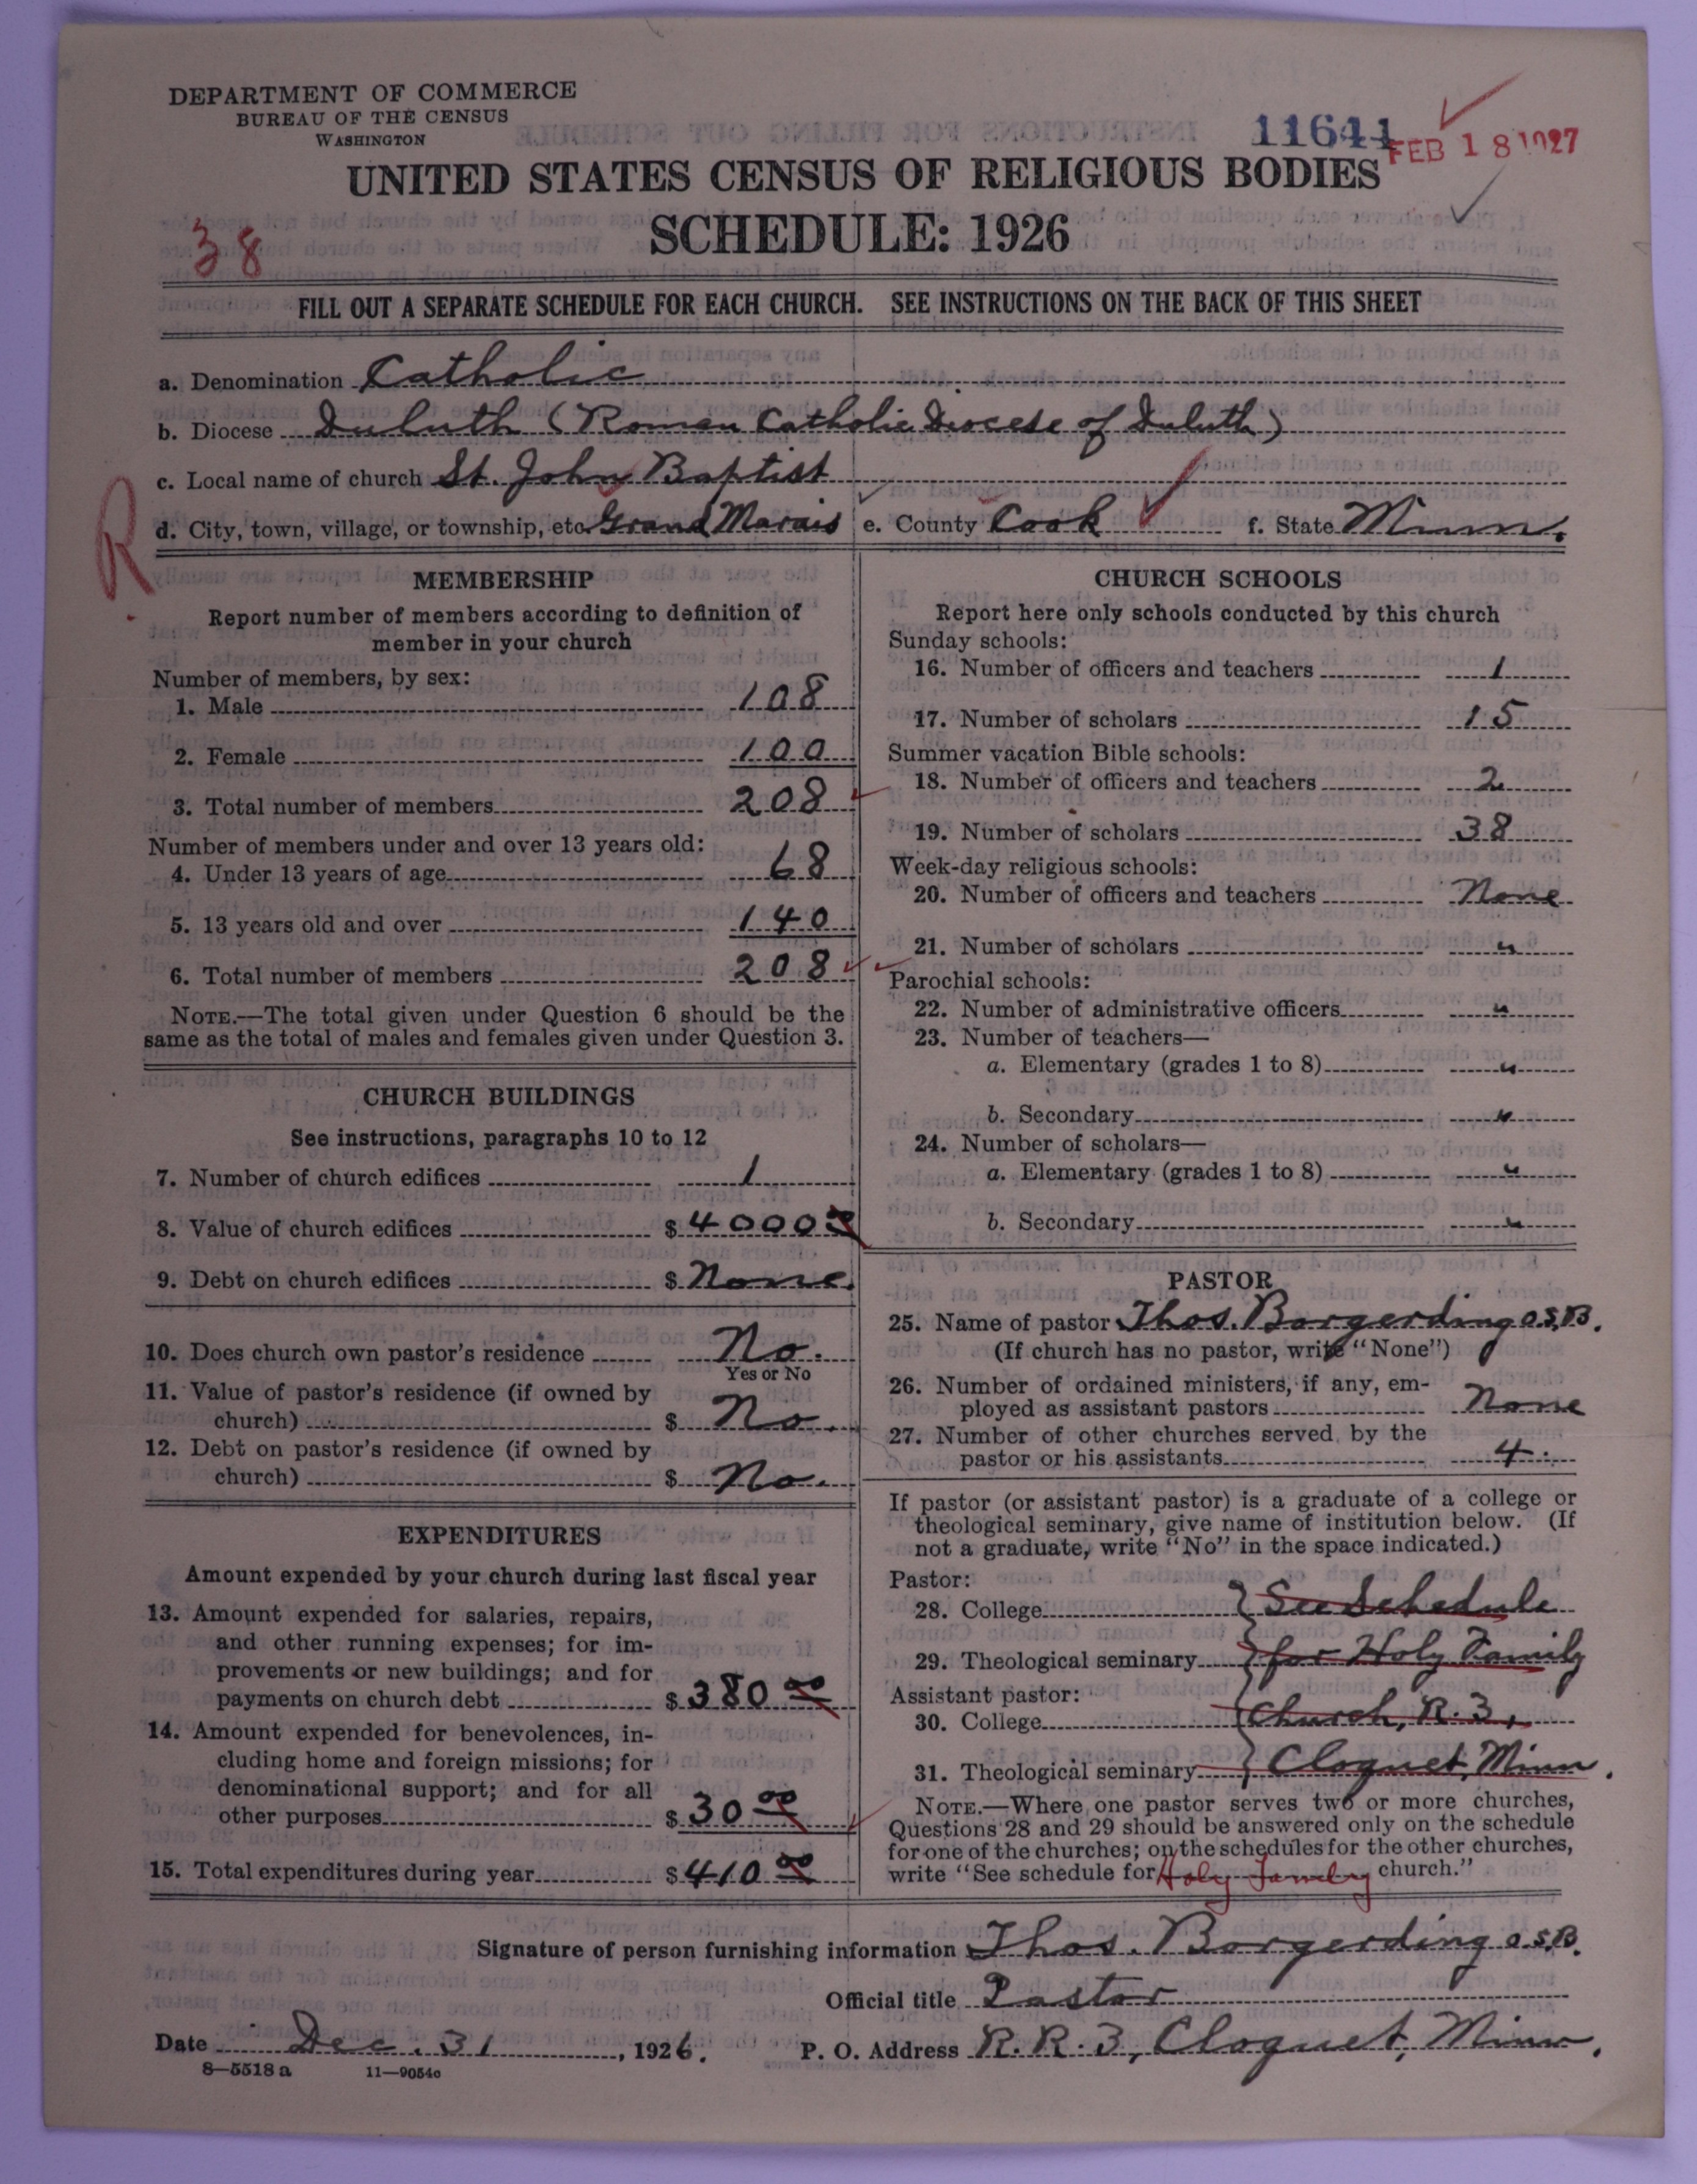 DEPARTMENT OF COMMERCE
BUREAU OF THE CENSUS
WASHINGTON
11644
FEB 18 1927
UNITED STATES CENSUS OF RELIGIOUS BODIES
SCHEDULE: 1926
38
FILL OUT A SEPARATE SCHEDULE FOR EACH CHURCH. SEE INSTRUCTIONS ON THE BACK OF THIS SHEET
a. Denomination Catholic
b. Diocese Duluth (Roman Catholic Diocese of Duluth)
c. Local name of church St. John Baptist
R
d. City, town, village, or township, etc. Grand Marais e. County Cook f. State Minn.
MEMBERSHIP
Report number of members according to definition of
member in your church
Number of members, by sex:
1. Male 108
2. Female 100
3. Total number of members 208
Number of members under and over 13 years old:
4. Under 13 years of age 68
5. 13 years old and over 140
6. Total number of members 208
NOTE.—The total given under Question 6 should be the
same as the total of males and females given under Question 3.
CHURCH BUILDINGS
See instructions, paragraphs 10 to 12
7. Number of church edifices 1
8. Value of church edifices $ 4000 00
9. Debt on church edifices $ None.
10. Does church own pastor's residence No.
Yes or No
11. Value of pastor's residence (if owned by
church) $ No.
12. Debt on pastor's residence (if owned by
church) $ No.
EXPENDITURES
Amount expended by your church during last fiscal year
13. Amount expended for salaries, repairs,
and other running expenses; for im-
provements or new buildings; and for
payments on church debt $ 380 00
14. Amount expended for benevolences, in-
cluding home and foreign missions; for
denominational support; and for all
other purposes $ 30 00
15. Total expenditures during year $ 410 00
CHURCH SCHOOLS
Report here only schools conducted by this church
Sunday schools:
16. Number of officers and teachers 1
17. Number of scholars 15
Summer vacation Bible schools:
18. Number of officers and teachers 2
19. Number of scholars 38
Week-day religious schools:
20. Number of officers and teachers None
21. Number of scholars "
Parochial schools:
22. Number of administrative officers "
23. Number of teachers—
a. Elementary (grades 1 to 8) "
b. Secondary "
24. Number of scholars—
a. Elementary (grades 1 to 8) "
b. Secondary "
PASTOR
25. Name of pastor Thos. Borgerding O.S.B.
(If church has no pastor, write "None")
26. Number of ordained ministers, if any, em-
ployed as assistant pastors None
27. Number of other churches served by the
pastor or his assistants 4.
If pastor (or assistant pastor) is a graduate of a college or
theological seminary, give name of institution below. (If
not a graduate, write "No" in the space indicated.)
Pastor:
28. College See Schedule
29. Theological seminary for Holy Family
Assistant pastor:
30. College Church, R. 3,
31. Theological seminary Cloquet, Minn.
NOTE.—Where one pastor serves two or more churches,
Questions 28 and 29 should be answered only on the schedule
for one of the churches; on the schedules for the other churches,
write "See schedule for Holy Family church."
Signature of person furnishing information Thos. Borgerding O.S.B.
Official title Pastor
Date Dec. 31, 1926. P. O. Address R. R. 3, Cloquet, Minn.
8—5518 a 11—9054c